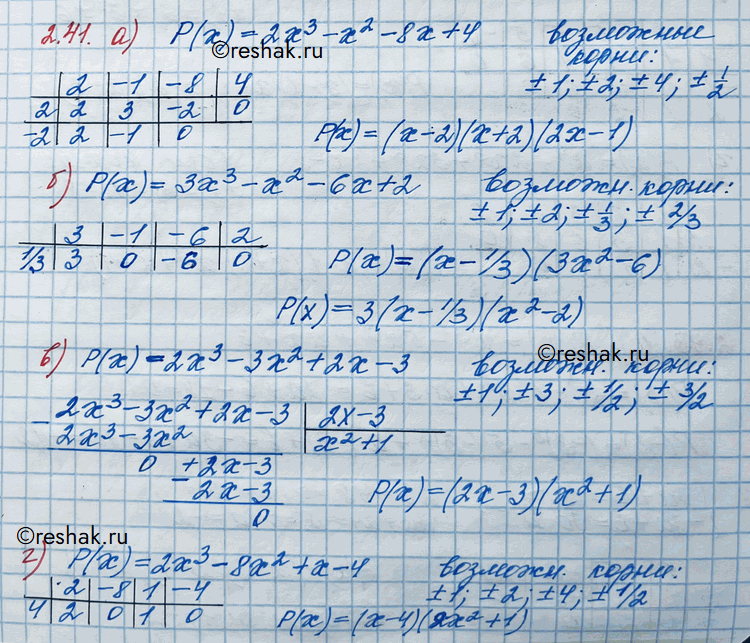 2.41. а) P(x) = 2x³ - x² - 8x + 4 возможные корни:
± 1; ± 2; ± 4; ± 1/2
2 | -1 | -8 | 4
2 | 2 | 3 | -2 | 0
-2 | 2 | -1 | 0
P(x) = (x-2)(x+2)(2x-1)
б) P(x) = 3x³ - x² - 6x + 2 возможн. корни:
± 1; ± 2; ± 1/3; ± 2/3
3 | -1 | -6 | 2
1/3 | 3 | 0 | -6 | 0
P(x) = (x - 1/3)(3x² - 6)
P(x) = 3(x - 1/3)(x² - 2)
©reshak.ru
в) P(x) = 2x³ - 3x² + 2x - 3 возможн. корни:
± 1; ± 3; ± 1/2; ± 3/2
- 2x³ - 3x² + 2x - 3 | 2x - 3
2x³ - 3x² | x² + 1
0 + 2x - 3
- 2x - 3
0
P(x) = (2x - 3)(x² + 1)
©reshak.ru
г) P(x) = 2x³ - 8x² + x - 4 возможн. корни:
± 1; ± 2; ± 4; ± 1/2
2 | -8 | 1 | -4
4 | 2 | 0 | 1 | 0
P(x) = (x-4)(2x² + 1)
©reshak.ru